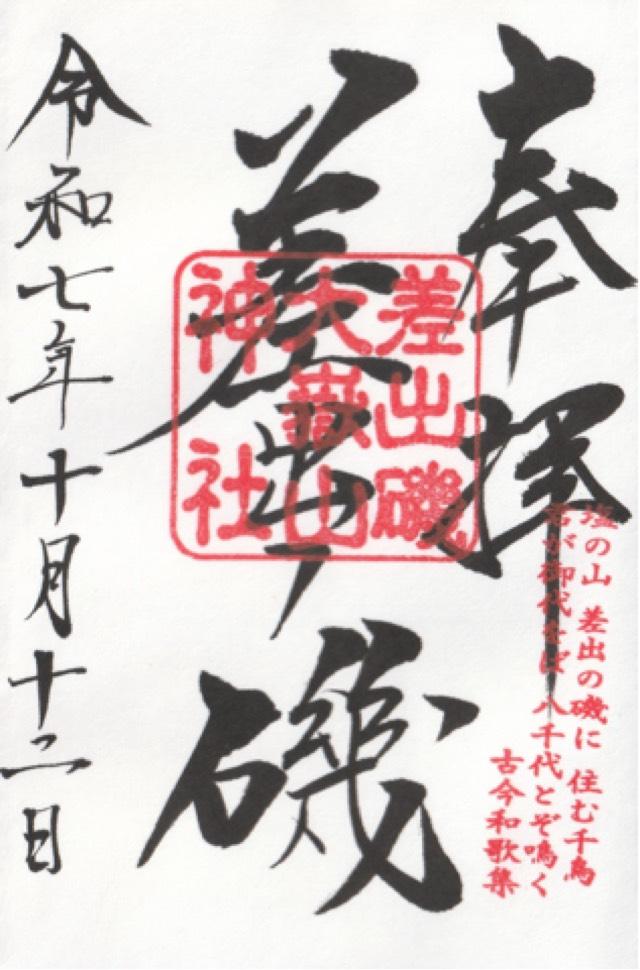 奉拝
塩の山 差出の磯に 住む千鳥
君が御代をば 八千代とぞ鳴く
古今和歌集
差出ノ磯
差出磯
大嶽山
神社
令和七年十月十二日